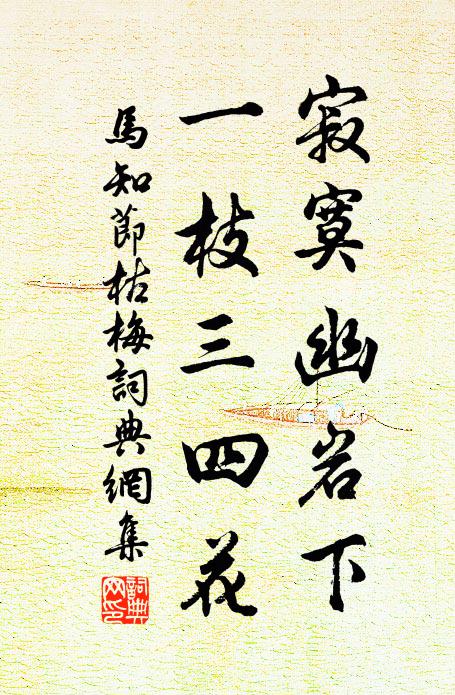 寂寞幽岩下
一枝三四花
馬知節枯梅詞典網集
詞典網印